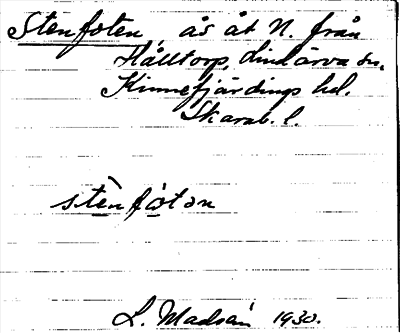 Stenfoten, ås åt N. från
Hålltorp, Lindärva sn,
Kinnefjärdings hd.
Skarab. l.
stènfòtən
L. Madsén 1930.